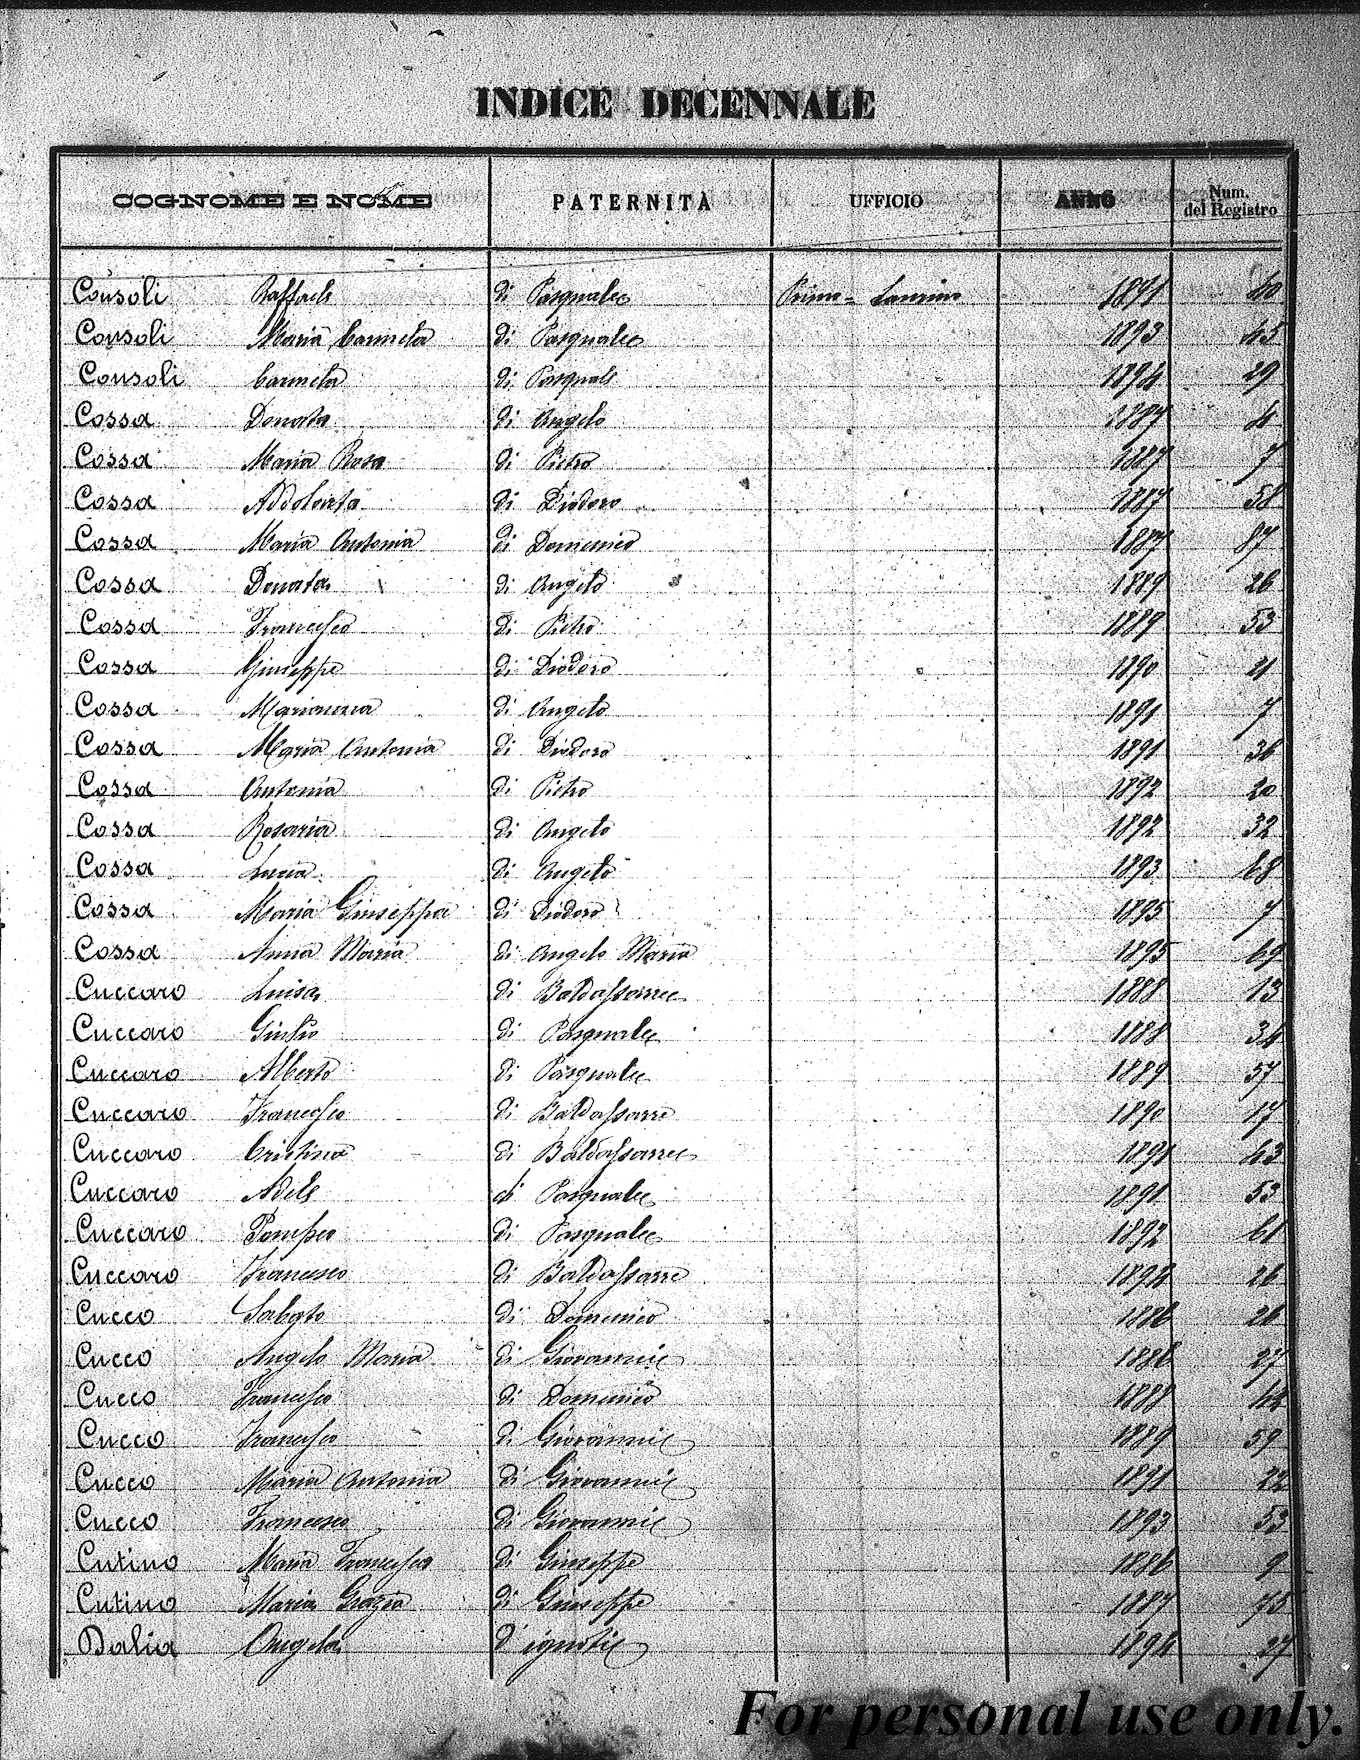 INDICE DECENNALE
COGNOME E NOME PATERNITÀ UFFICIO ANNO Num. del Registro
Consoli Raffaele di Pasquale 1891 40
Consoli Maria Carmela di Pasquale 1893 45
Consoli Carmela di Pasquale 1894 29
Cossa Donata di Angelo 1887 4
Cossa Maria Rosa di Pietro 1887 7
Cossa Addolorata di Diodoro 1887 58
Cossa Maria Antonia di Domenico 1887 87
Cossa Donata di Angelo 1889 26
Cossa Francesco di Pietro 1889 53
Cossa Giuseppe di Diodoro 1890 21
Cossa Marianna di Angelo 1891 7
Cossa Maria Antonia di Diodoro 1891 36
Cossa Antonia di Pietro 1892 20
Cossa Rosaria di Angelo 1892 32
Cossa Lucia di Angelo 1893 68
Cossa Maria Giuseppa di Diodoro 1895 7
Cossa Anna Maria di Angelo Maria 1895 69
Cuccaro Luisa di Baldassarre 1888 13
Cuccaro Giulio di Pasquale 1888 34
Cuccaro Alberto di Pasquale 1889 57
Cuccaro Francesco di Baldassarre 1890 17
Cuccaro Cristina di Baldassarre 1891 43
Cuccaro Adele di Pasquale 1891 53
Cuccaro Pompeo di Pasquale 1892 61
Cuccaro Francesco di Baldassarre 1894 26
Cucco Sabato di Domenico 1886 26
Cucco Angelo Maria di Giovanni 1886 27
Cucco Francesco di Domenico 1888 44
Cucco Francesco di Giovanni 1889 59
Cucco Maria Antonia di Giovanni 1891 22
Cucco Francesco di Giovanni 1893 53
Cutino Maria Francesca di Giuseppe 1886 9
Cutino Maria Grazia di Giuseppe 1887 75
Dalia Angela d'ignoti 1894 27
For personal use only.